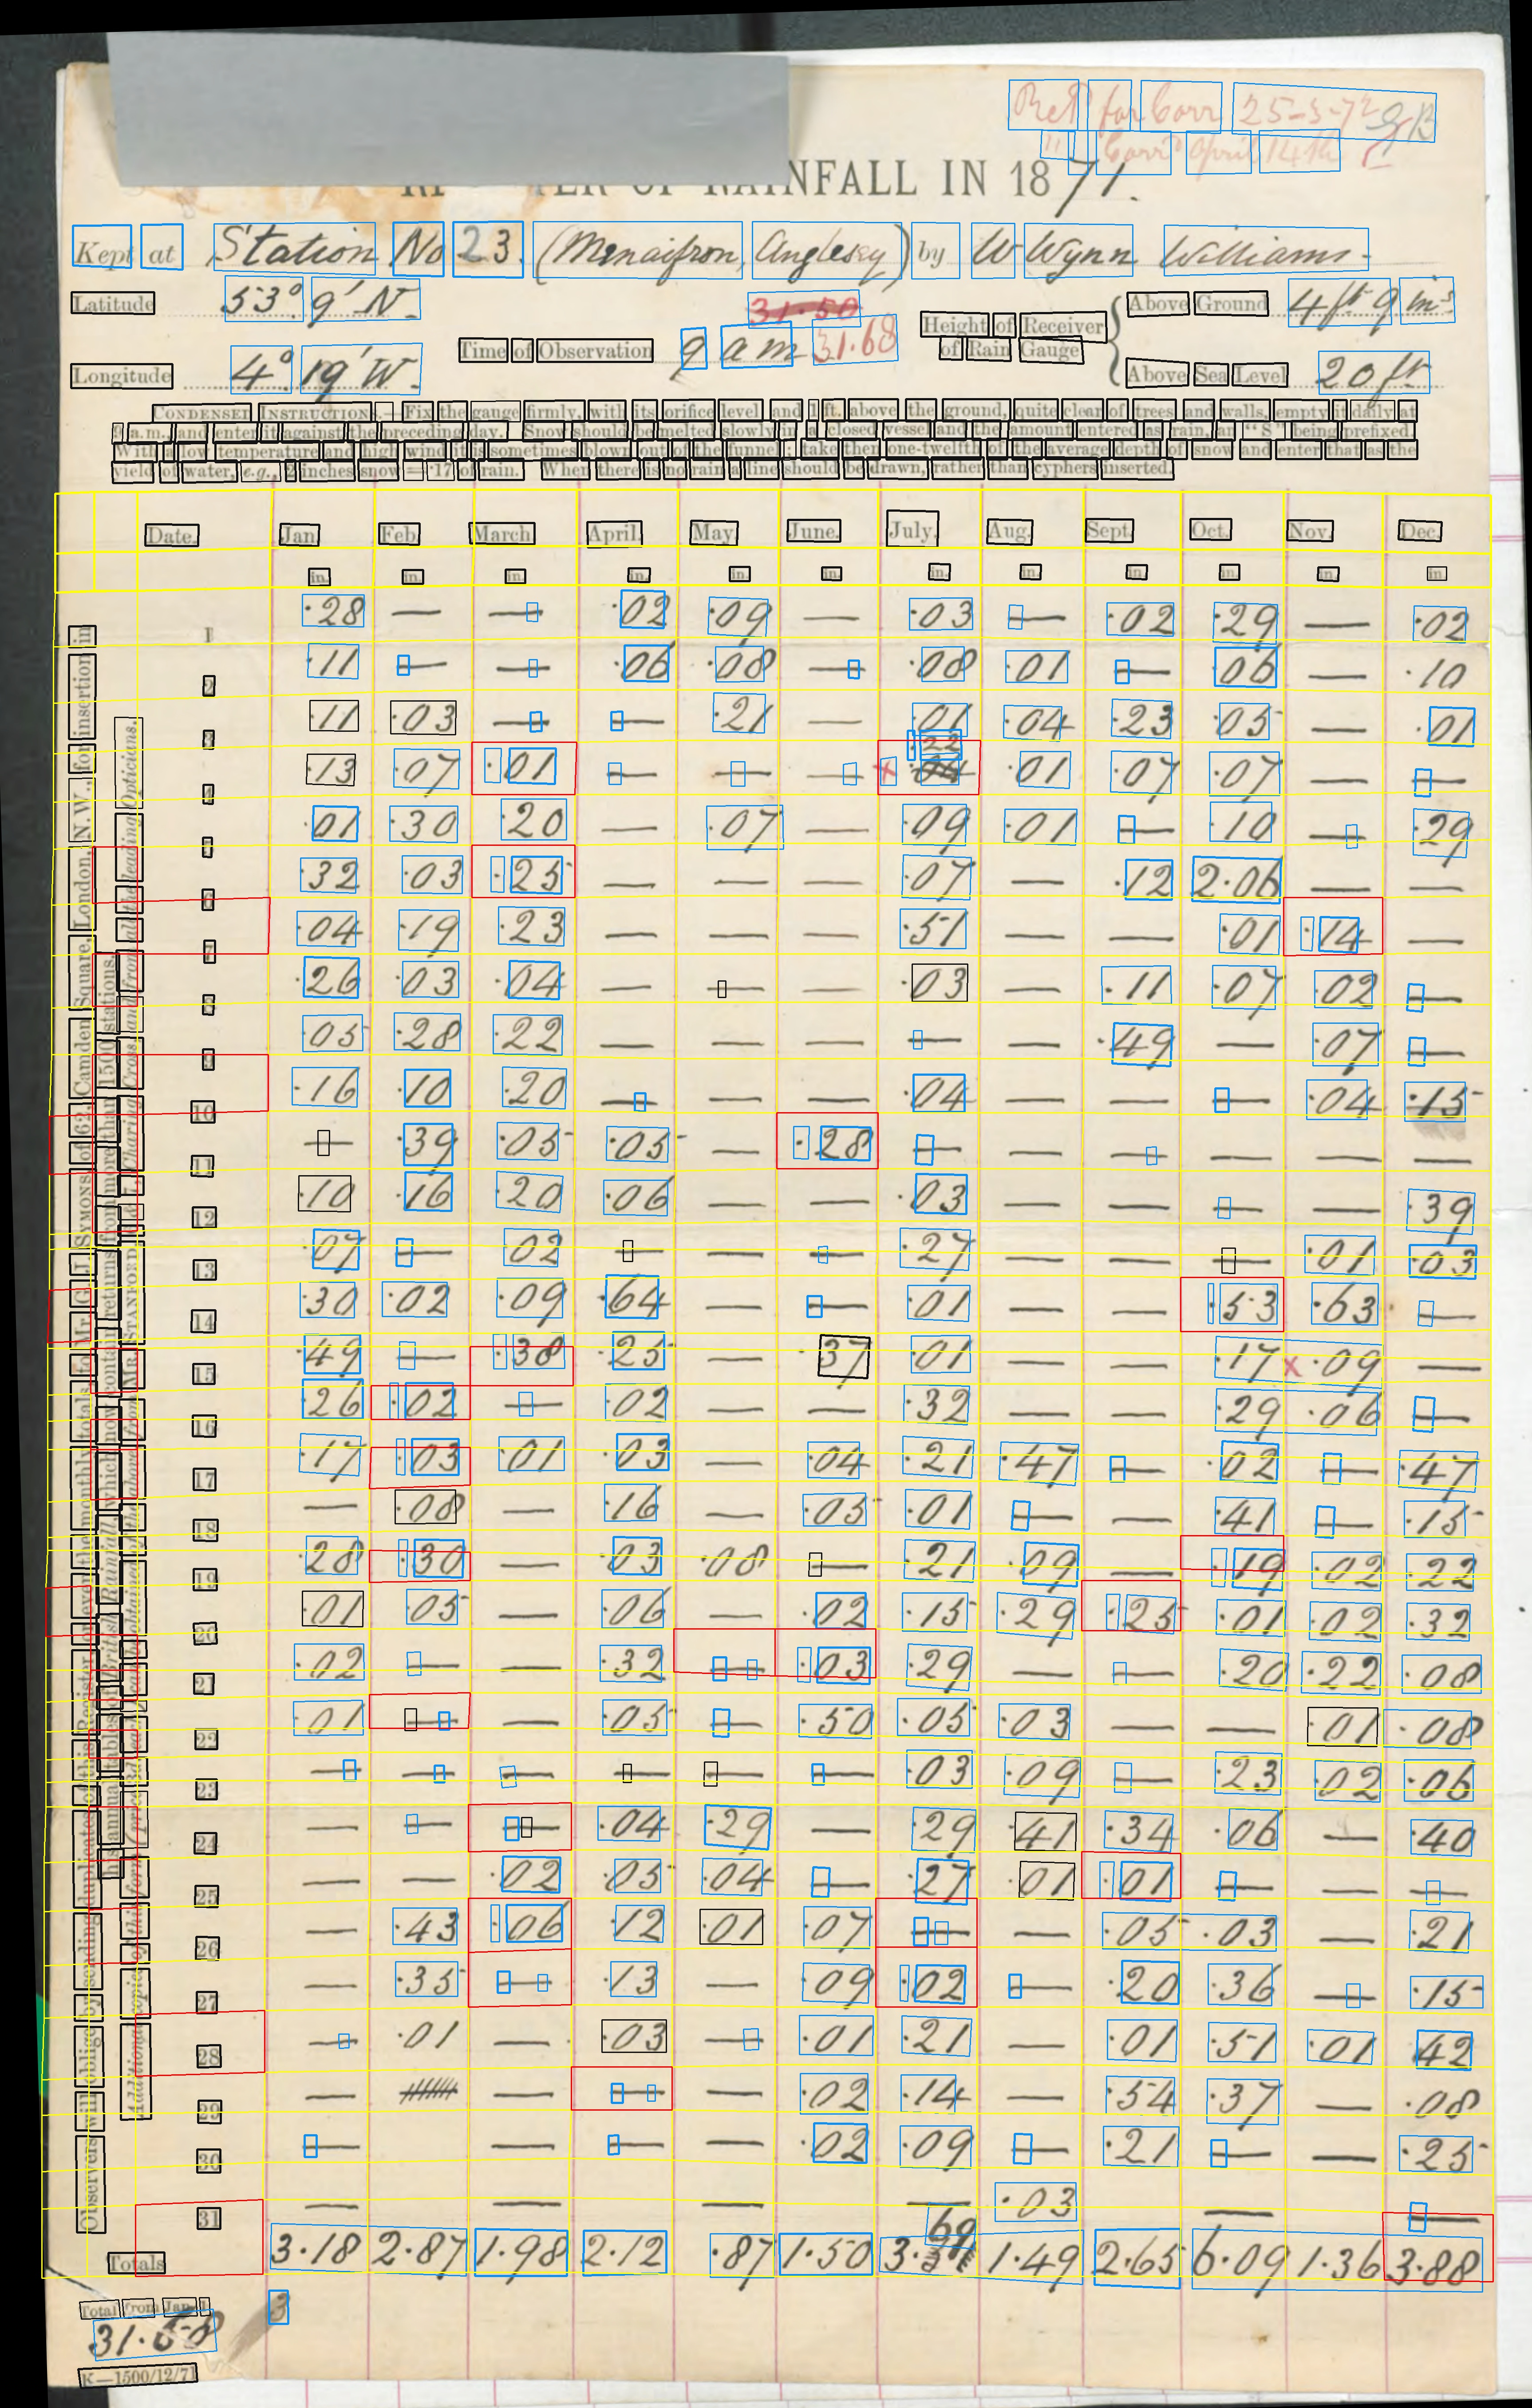 Retd for Corr 25-3-72 GB
" Corrd April 14th
NFALL IN 1871.
Kept at Station No 23. (Menaifron, Anglesey) by W Wynn Williams.
Latitude 53° 9' N. 31.50 Height of Receiver of Rain Gauge Above Ground 4 ft 9 ins
Longitude 4° 19' W. Time of Observation 9 am 31.68 Above Sea Level 20 ft
CONDENSED INSTRUCTIONS.—Fix the gauge firmly, with its orifice level and 1 ft. above the ground, quite clear of trees and walls, empty it daily at
9 a.m., and enter it against the preceding day. Snow should be melted slowly in a closed vessel and the amount entered as rain, an "S" being prefixed.
With a low temperature and high wind it is sometimes blown out of the funnel; take then one-twelfth of the average depth of snow and enter that as the
yield of water, e.g., 2 inches snow = ·17 of rain. When there is no rain a line should be drawn, rather than cyphers inserted.
Date. Jan. Feb. March April. May. June. July. Aug. Sept. Oct. Nov. Dec.
in. in. in. in. in. in. in. in. in. in. in. in.
1 ·28 — — ·02 ·09 — ·03 — ·02 ·29 — ·02
2 ·11 — — ·06 ·08 — ·08 ·01 — ·06 — ·10
3 ·11 ·03 — — ·21 — ·01 ·04 ·23 ·05 — ·01
4 ·13 ·07 ·01 — — — ·22 x ·04 ·01 ·07 ·07 — —
5 ·01 ·30 ·20 — ·07 — ·09 ·01 — ·10 — ·29
6 ·32 ·03 ·25 — — — ·07 — ·12 2·06 — —
7 ·04 ·19 ·23 — — — ·51 — — ·01 ·14 —
8 ·26 ·03 ·04 — — — ·03 — ·11 ·07 ·02 —
9 ·05 ·28 ·22 — — — — — ·49 — ·07 —
10 ·16 ·10 ·20 — — — ·04 — — — ·04 ·15
11 — ·39 ·05 ·05 — ·28 — — — — — —
12 ·10 ·16 ·20 ·06 — — ·03 — — — — ·39
13 ·07 — ·02 — — — ·27 — — — ·01 ·03
14 ·30 ·02 ·09 ·64 — — ·01 — — ·53 ·63 —
15 ·49 — ·38 ·25 — ·37 ·01 — — ·17 x ·09 —
16 ·26 ·02 — ·02 — — ·32 — — ·29 ·06 —
17 ·17 ·03 ·01 ·03 — ·04 ·21 ·47 — ·02 — ·47
18 — ·08 — ·16 — ·05 ·01 — — ·41 — ·15
19 ·28 ·30 — ·03 ·08 — ·21 ·09 — ·19 ·02 ·22
20 ·01 ·05 — ·06 — ·02 ·15 ·29 ·25 ·01 ·02 ·32
21 ·02 — — ·32 — ·03 ·29 — — ·20 ·22 ·08
22 ·01 — — ·05 — ·50 ·05 ·03 — — ·01 ·08
23 — — — — — — ·03 ·09 — ·23 ·02 ·06
24 — — — ·04 ·29 — ·29 ·41 ·34 ·06 — ·40
25 — — ·02 ·05 ·04 — ·27 ·01 ·01 — — —
26 — ·43 ·06 ·12 ·01 ·07 — — ·05 ·03 — ·21
27 — ·35 — ·13 — ·09 ·02 — ·20 ·36 — ·15
28 — ·01 — ·03 — ·01 ·21 — ·01 ·51 ·01 ·42
29 — — — — ·02 ·14 — ·54 ·37 — ·08
30 — — — — ·02 ·09 — ·21 — — ·25
31 — — — — ·03 — —
Totals 3·18 2·87 1·98 2·12 ·87 1·50 3·69 1·49 2·65 6·09 1·36 3·88
Total from Jan. 1
31·58
3
K—1500/12/71
Observers will oblige by sending duplicates of this Register, or even the monthly totals, to Mr. G. J. SYMONS, of 62, Camden Square, London, N.W., for insertion in
his annual tables of British Rainfall, which now contain returns from more than 1500 stations.